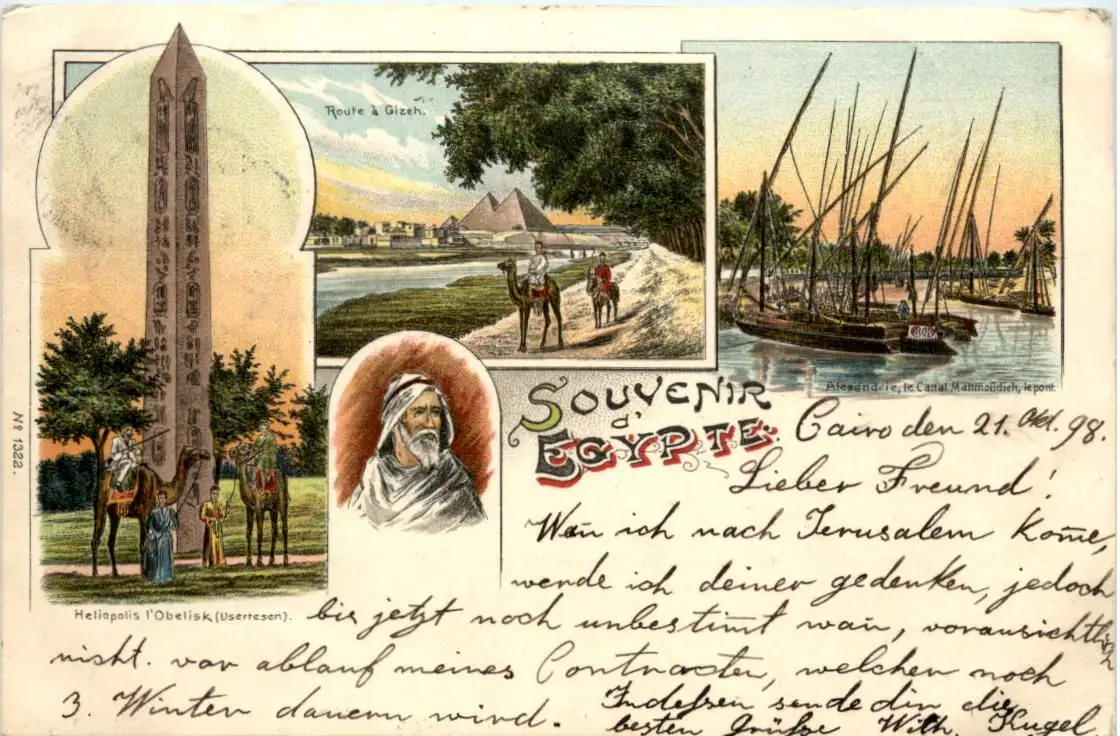 Route à Gizeh.
Alexandrie, le Canal Mahmoûdieh, le pont.
Nº 1322.
SOUVENIR
d'
EGYPTE.
Heliopolis l'Obelisk (Usertesen).
Cairo den 21. Okt. 98.
Lieber Freund!
Wan̄ ich nach Jerusalem kom̄e,
werde ich deiner gedenken, jedoch
bis jetzt noch unbestim̄t wan̄, voraussichtlich
nicht vor ablauf meines Contractes, welcher noch
3. Winter dauern wird.
Indessen sende dir die
besten Grüße Wilh. Kugel